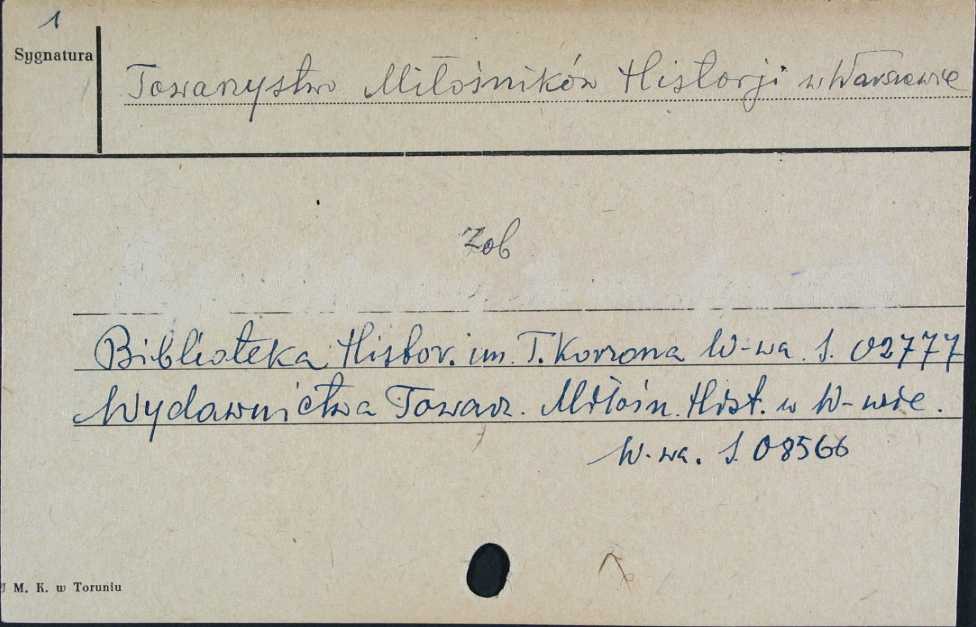 1
Sygnatura
Towarzystwo Miłośników Historji w Warszawie
Zob
Biblioteka Histor. im. T. Korzona W-wa. S. 02777
Wydawnictwa Towarz. Miłośn. Hist. w W-wie.
W-wa. S. 08566
M. K. w Toruniu